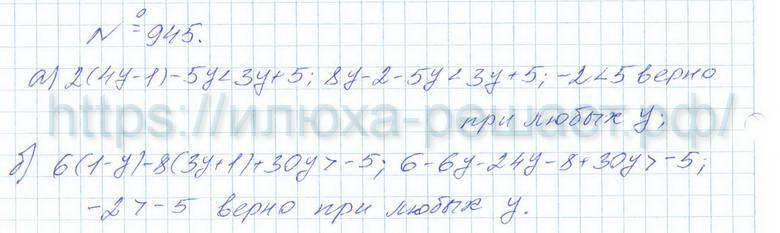 № 945.
а) 2(4y-1)-5y<3y+5; 8y-2-5y<3y+5; -2<5 верно
https://илюха-решает.рф/
при любых y;
б) 6(1-y)-8(3y+1)+30y>-5; 6-6y-24y-8+30y>-5;
-2>-5 верно при любых y.